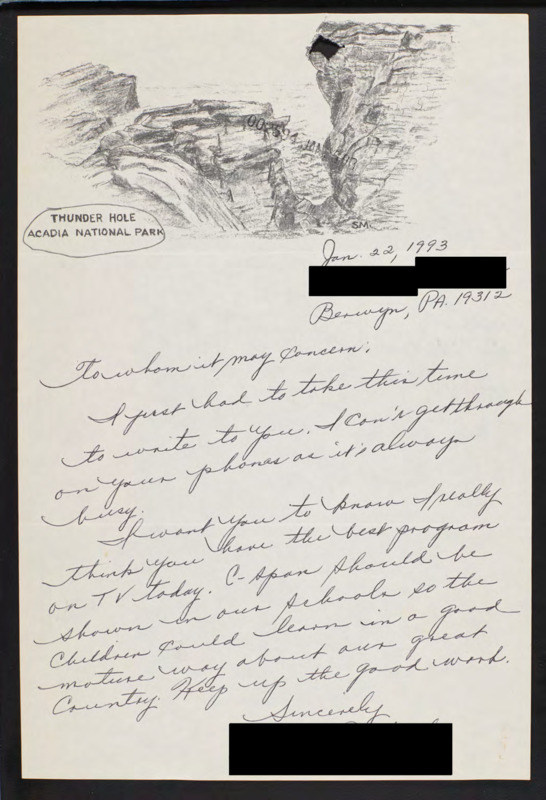 THUNDER HOLE
ACADIA NATIONAL PARK
SM
Jan. 22, 1993
Berwyn, PA. 19312
To whom it may concern:
I just had to take this time
to write to you. I can't get through
on your phones as it's always
busy.
I want you to know I really
think you have the best program
on TV today. C-Span should be
shown in our schools so the
Children could learn in a good
mature way about our great
Country. Keep up the good work.
Sincerely